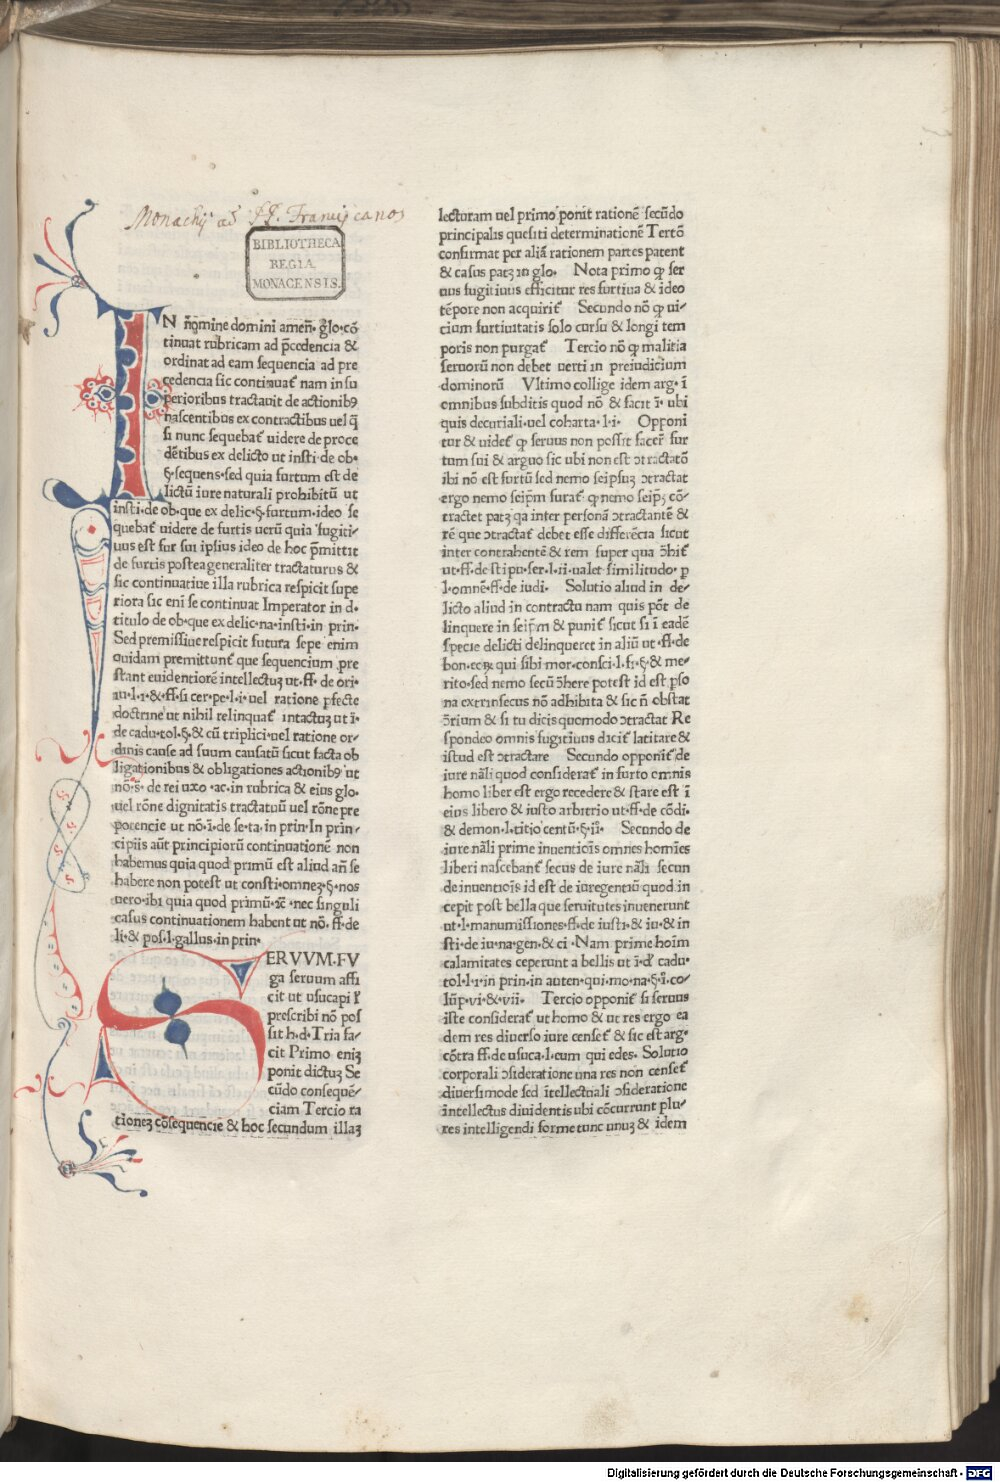 Monachij ad PP. Franciscanos
BIBLIOTHECA
REGIA
MONACENSIS.
IN nōmine domini amen̄· glo·cō
tinuat rubricam ad p̄cedencia &
ordinat ad eam sequencia ad pre
cedencia sic continuat᷑ nam in su
perioribus tractauit de actionibꝯ
nascentibus ex contractibus uel q̄
si nunc sequebat᷑ uidere de proce
dētibus ex delicto ut insti·de ob·
§·sequens·sed quia furtum est de
lictū iure naturali prohibitū ut
insti·de ob·que ex delic·§·furtum·ideo se
quebat᷑ uidere de furtis uerū quia fugiti⸗
uus est fur sui ipsius ideo de hoc p̄mittit
de furtis postea generaliter tractaturus &
sic continuatiue illa rubrica respicit supe
riora sic eni se continuat Imperator in d·
titulo de ob·que ex delic·na·insti·in prin·
Sed premissiue respicit futura sepe enim
quidam premittunt᷑ que sequencium pre
stant euidentiorē intellectuꝫ ut·ff·de ori·
iu·l·1·&·ff·si cer·pe·l·i·uel ratione pfecte
doctrine ut nihil relinquat᷑ intactuꝫ ut ī·
de cadu·tol·§·& cū triplici·uel ratione or⸗
dinis cause ad suum causatū sicut facta ob
ligationibus & obligationes actionibꝯ ut
nō·s̄·de rei uxo·ac·in rubrica & eius glo·
uel rōne dignitatis tractatuū uel rōne pre
potencie ut nō·ī·de se·ta·in prin·In prin⸗
cipiis aūt principiorū continuationē non
habemus quia quod primū est aliud an̄ se
habere non potest ut consti·omneꝫ·§·nos
uero·ibi quia quod primū·īc̄·nec singuli
casus continuationem habent ut nō·ff·de
li·& pos·l·gallus·in prin·
SERVVM·FV
ga seruum affi
cit ut usucapi l᷑
prescribi nō pos
sit h·d·Tria fa⸗
cit Primo eniꝫ
ponit dictuꝫ Se
cūdo consequē⸗
ciam Tercio ra
tioneꝫ cōsequencie & hoc secundum illaꝫ
lecturam uel primo ponit rationē secūdo
principalis quesiti determinationē Tertō
confirmat per aliā rationem partes patent
& casus patꝫ in glo· Nota primo ꝙ ser
uus fugitiuus efficitur res furtiua & ideo
tēpore non acquirit᷑ Secundo nō ꝙ ui⸗
cium furtiuitatis solo cursu & longi tem
poris non purgat᷑ Tercio nō ꝙ malitia
seruorū non debet uerti in preiudicium
dominorū Vltimo collige idem arg·ī
omnibus subditis quod nō & facit ī· ubi
quis decuriali·uel coharta·l·i· Opponi
tur & uidet᷑ ꝙ seruus non possit facer᷑ fur
tum sui & arguo sic ubi non est ɔtractatō
ibi nō est furtū sed nemo seipsuꝫ ɔtractat
ergo nemo seip̄m furat᷑ ꝙ nemo seip̄ꝫ cō⸗
tractet patꝫ qa inter personā ɔtractantē &
rē que ɔtractat᷑ debet esse differēcia sicut
inter contrahentē & rem super qua ɔ̄hit᷑
ut·ff·de stipu·ser·l·ii·ualet similitudo· ꝑ
l·omnē·ff·de iudi· Solutio aliud in de⸗
licto aliud in contractu nam quis pōt de
linquere in seip̄m & punit᷑ sicut si ī eadē
specie delicti delinqueret in aliū ut·ff·de
bon·eoꝝ qui sibi mor·consci·l·fi·§·& me⸗
rito·sed nemo secū ɔ̄here potest id est ꝑso
na extrinsecus nō adhibita & sic n̄ obstat
ɔ̄rium & si tu dicis quomodo ɔtractat Re
spondeo omnis fugitiuus dicit᷑ latitare &
istud est ɔtractare Secundo opponit᷑ de
iure nāli quod considerat᷑ in furto omnis
homo liber est ergo recedere & stare est ī
eius libero & iusto arbitrio ut·ff·de cōdi·
& demon·l·titio centū·§·ii· Secundo de
iure nāli prime inuentiōis omnes homīes
liberi nascebant᷑ secus de iure nāli secun
de inuentiōis id est de iuregentiū quod in
cepit post bella que seruitutes inuenerunt
ut·l·manumissiones·ff·de iusti·& iu·& in
sti·de iu·na·gen·& ci·Nam prime hoīm
calamitates ceperunt a bellis ut ī·d᷑ cadu·
tol·l·i·in prin·in auten·qui·mo·na·§·ī·co⸗
lūp·vi·& vii· Tercio opponit᷑ si seruus
iste considerat᷑ ut homo & ut res ergo ea
dem res diuerso iure censet᷑ & sic est arg·
cōtra ff·de usuca·l·eum qui edes· Solutio
corporali ɔsideratione una res non censet᷑
diuersimode sed ītellectuali ɔsideratione
ītellectus diuidentis ubi cōcurrunt plu⸗
res intelligendi forme tunc unuꝫ & idem
Digitalisierung gefördert durch die Deutsche Forschungsgemeinschaft - DFG